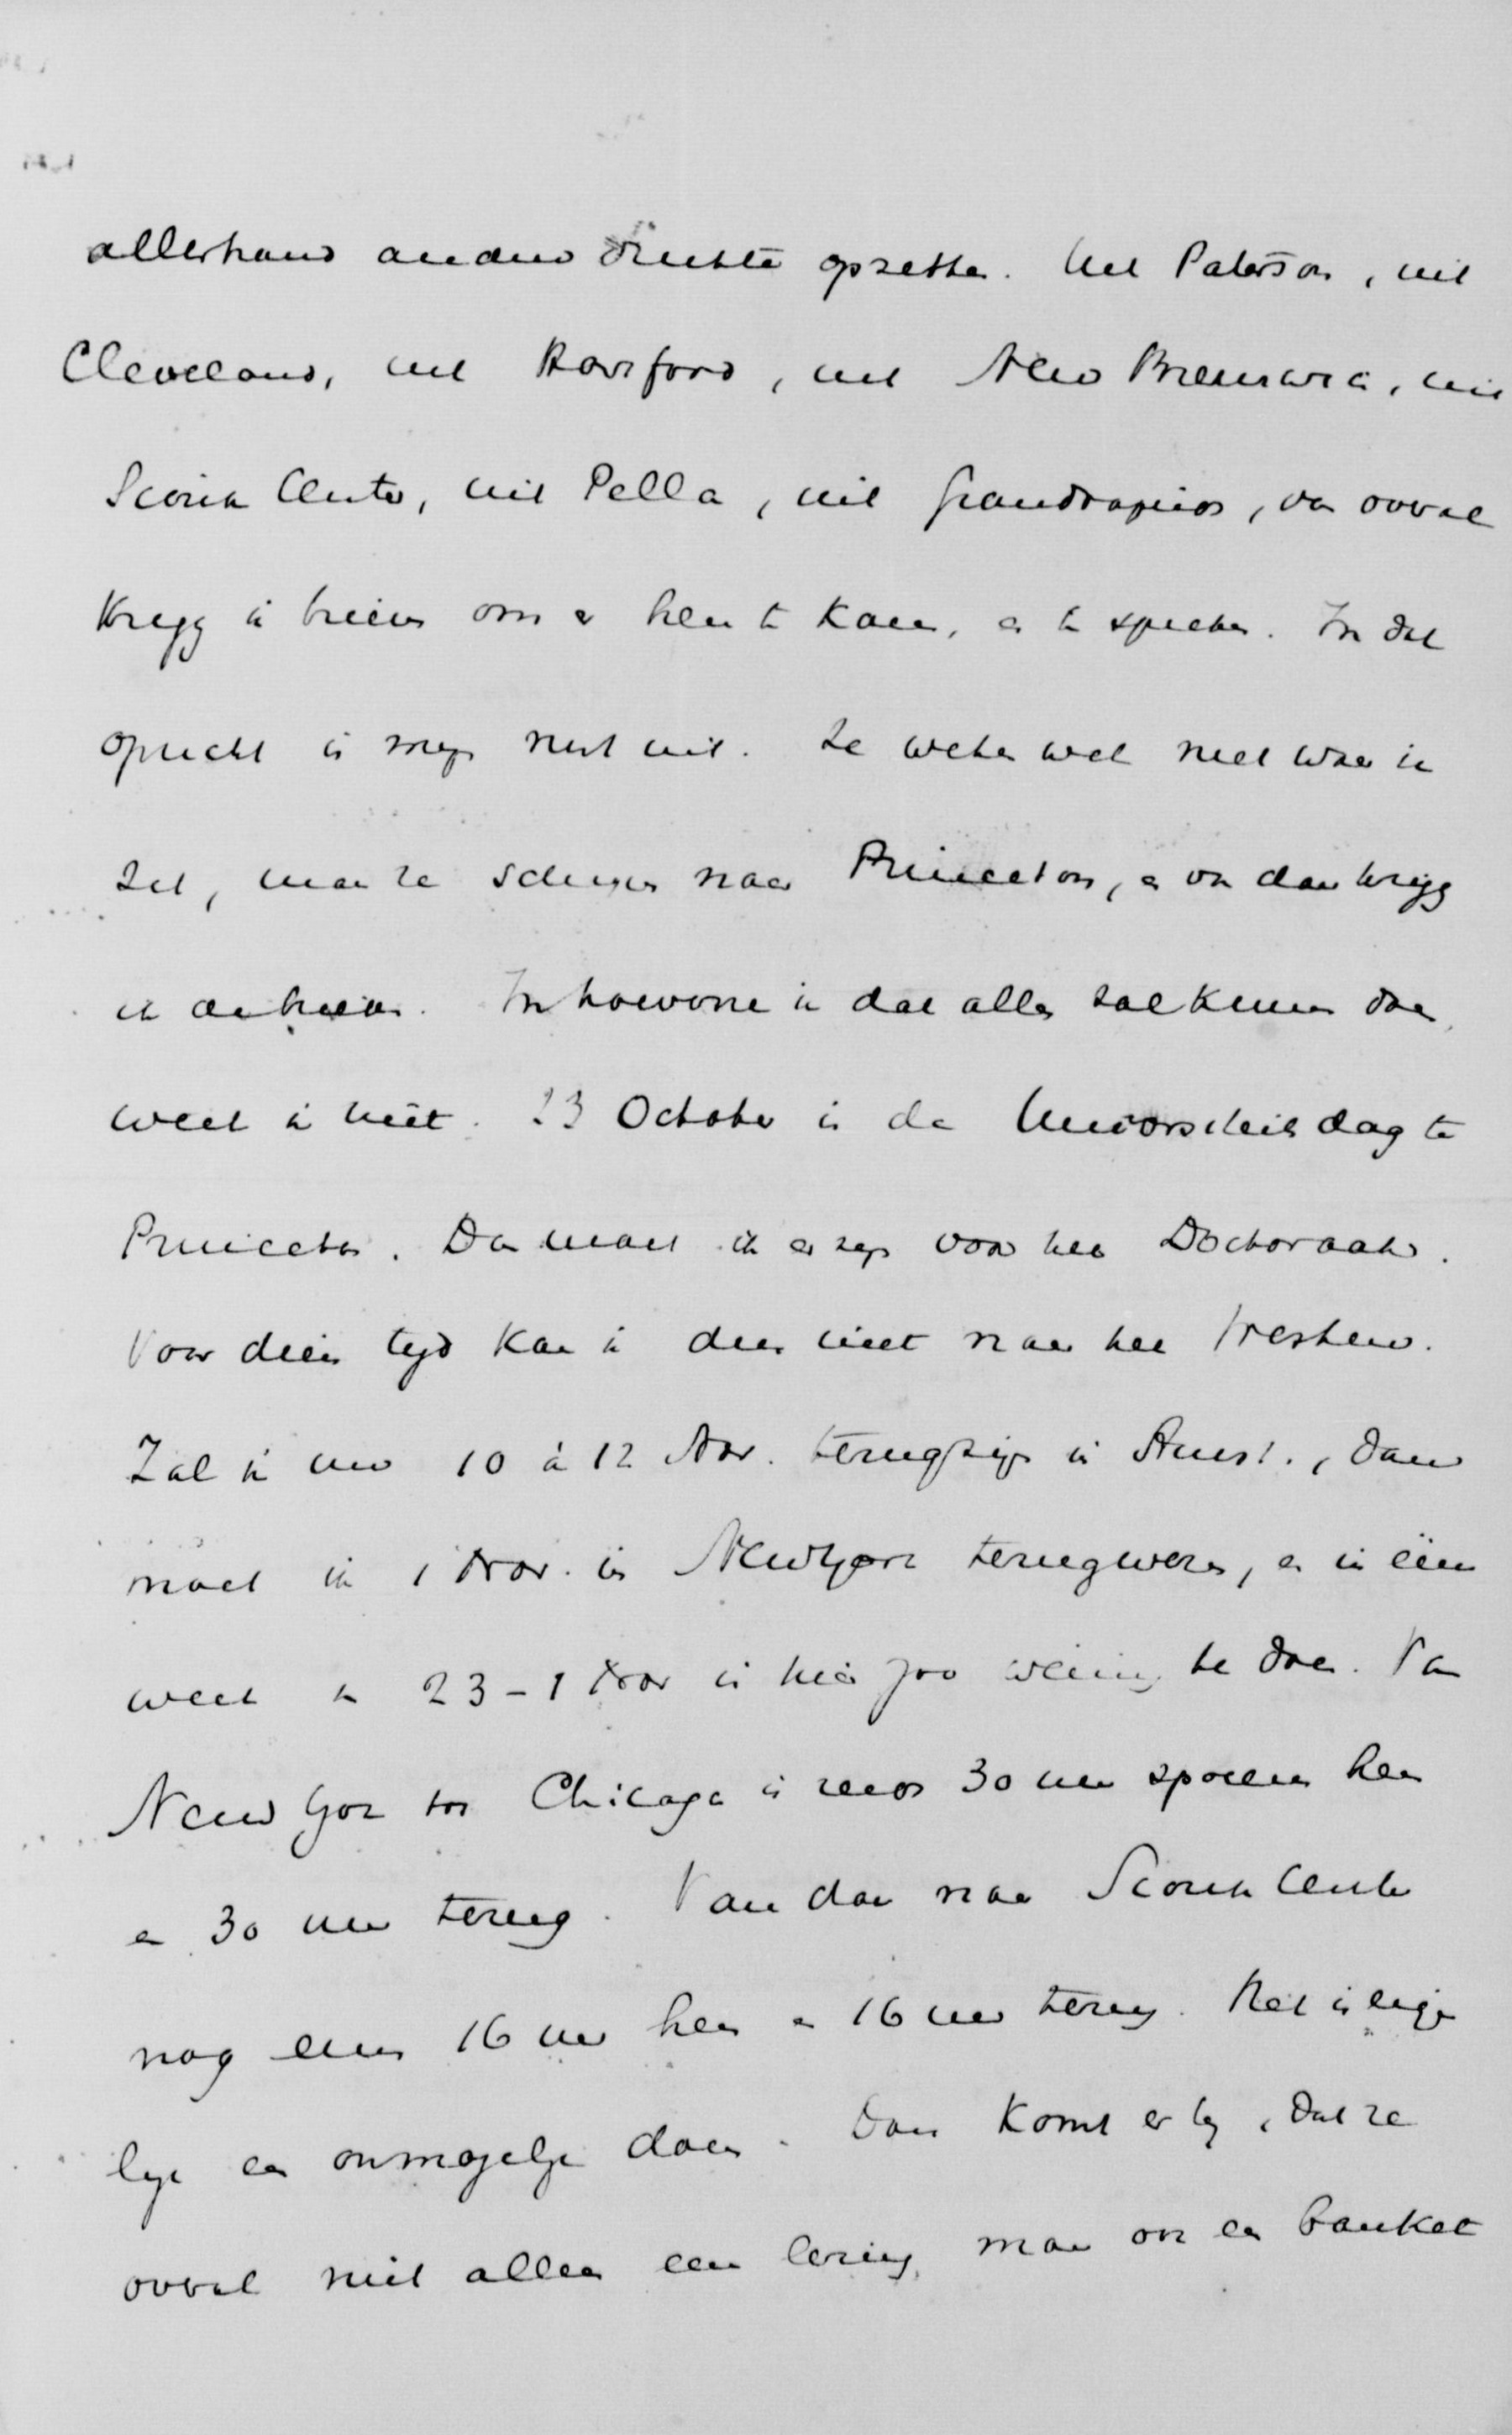 allerhand andere drukte opzetten. Uit Paterson, uit
Cleveland, uit Hartford, uit New Brunswick, uit
Scioux Center, uit Pella, uit Grandrapids, van overal
krijg ik brieven om er heen te komen, en te spreken. In dat
opzicht is mijn rust uit. Ze weten wel niet waar ik
zit, maar ze schrijven naar Princeton, en van daar krijg
ik de brieven. In hoeverre ik dat alles zal kunnen doen,
weet ik niet. 23 October is de Universiteitsdag te
Princeton. Dan moet ik er zijn voor het Doctoraat.
Voor dien tijd kan ik dus niet naar het Westen.
Zal ik nu 10 à 12 Nov. terugzijn in Amst., dan
moet ik 1 Nov. in NewYork terugwezen, en in één
week van 23 – 1 Nov is hier zoo weinig te doen. Van
New York tot Chicago is reeds 30 uur sporen heen
en 30 uur terug. Van daar naar Scioux Center
nog eens 16 uur heen en 16 uur terug. Het is eigen
lijk een onmogelijk doen. Dan komt er bij, dat ze
overal niet alleen een lezing, maar ook een banket